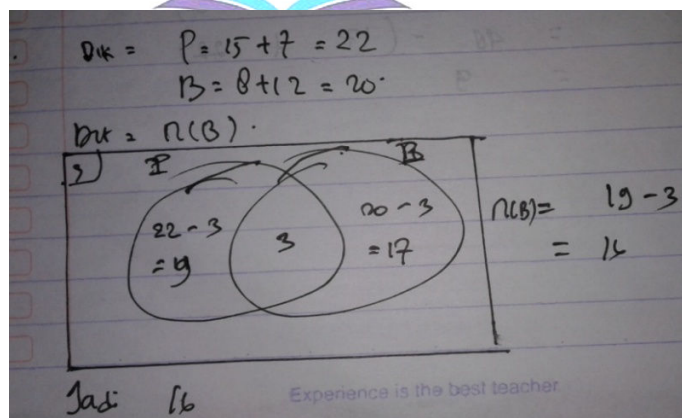 Dik = P = 15 + 7 = 22
B = 8 + 12 = 20
Dit = n(B).
S
P
B
22 - 3
= 19
3
20 - 3
= 17
n(B) = 19 - 3
= 16
Jadi 16
Experience is the best teacher